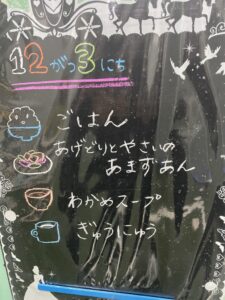 12がつ3にち
ごはん
あげどりとやさいの
あまずあん
わかめスープ
ぎゅうにゅう